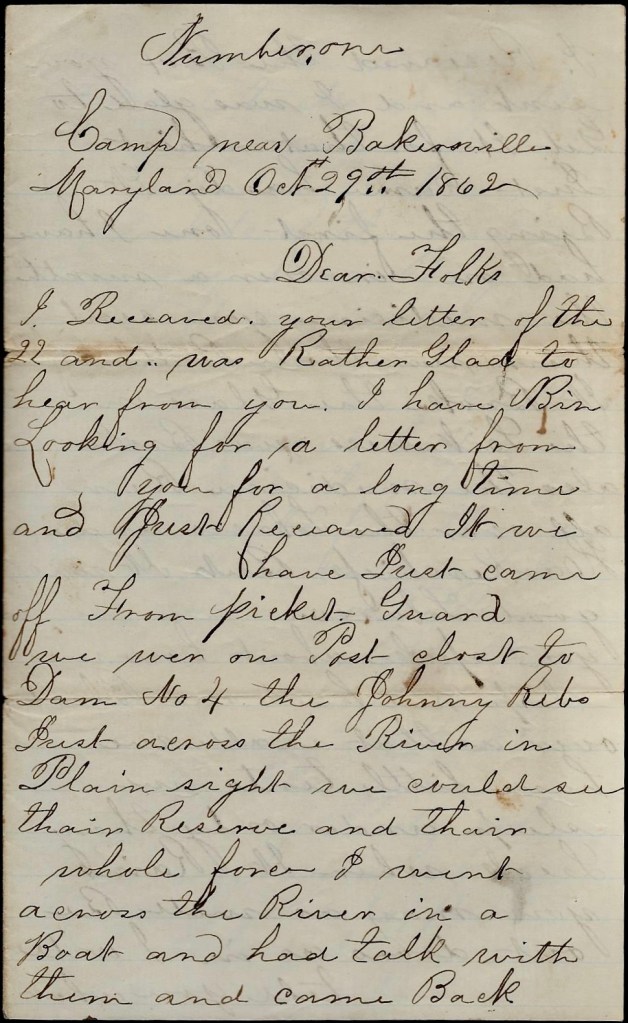 Number. one
Camp near Bakersville
Maryland Oct 29th. 1862
Dear. Folks
I. Receaved. your letter of the
22 and.. was Rather Glad to
hear from you. I have Bin
Looking for a letter from
you for a long time
and Just Receaved It we
have Just came
off From picket. Guard
we wer on Post clost to
Dam No 4 the Johnny Rebs
Just across the River in
Plain sight we could see
thair Reserve and thair
whole force I went
across the River in a
Boat and had talk with
them and came Back